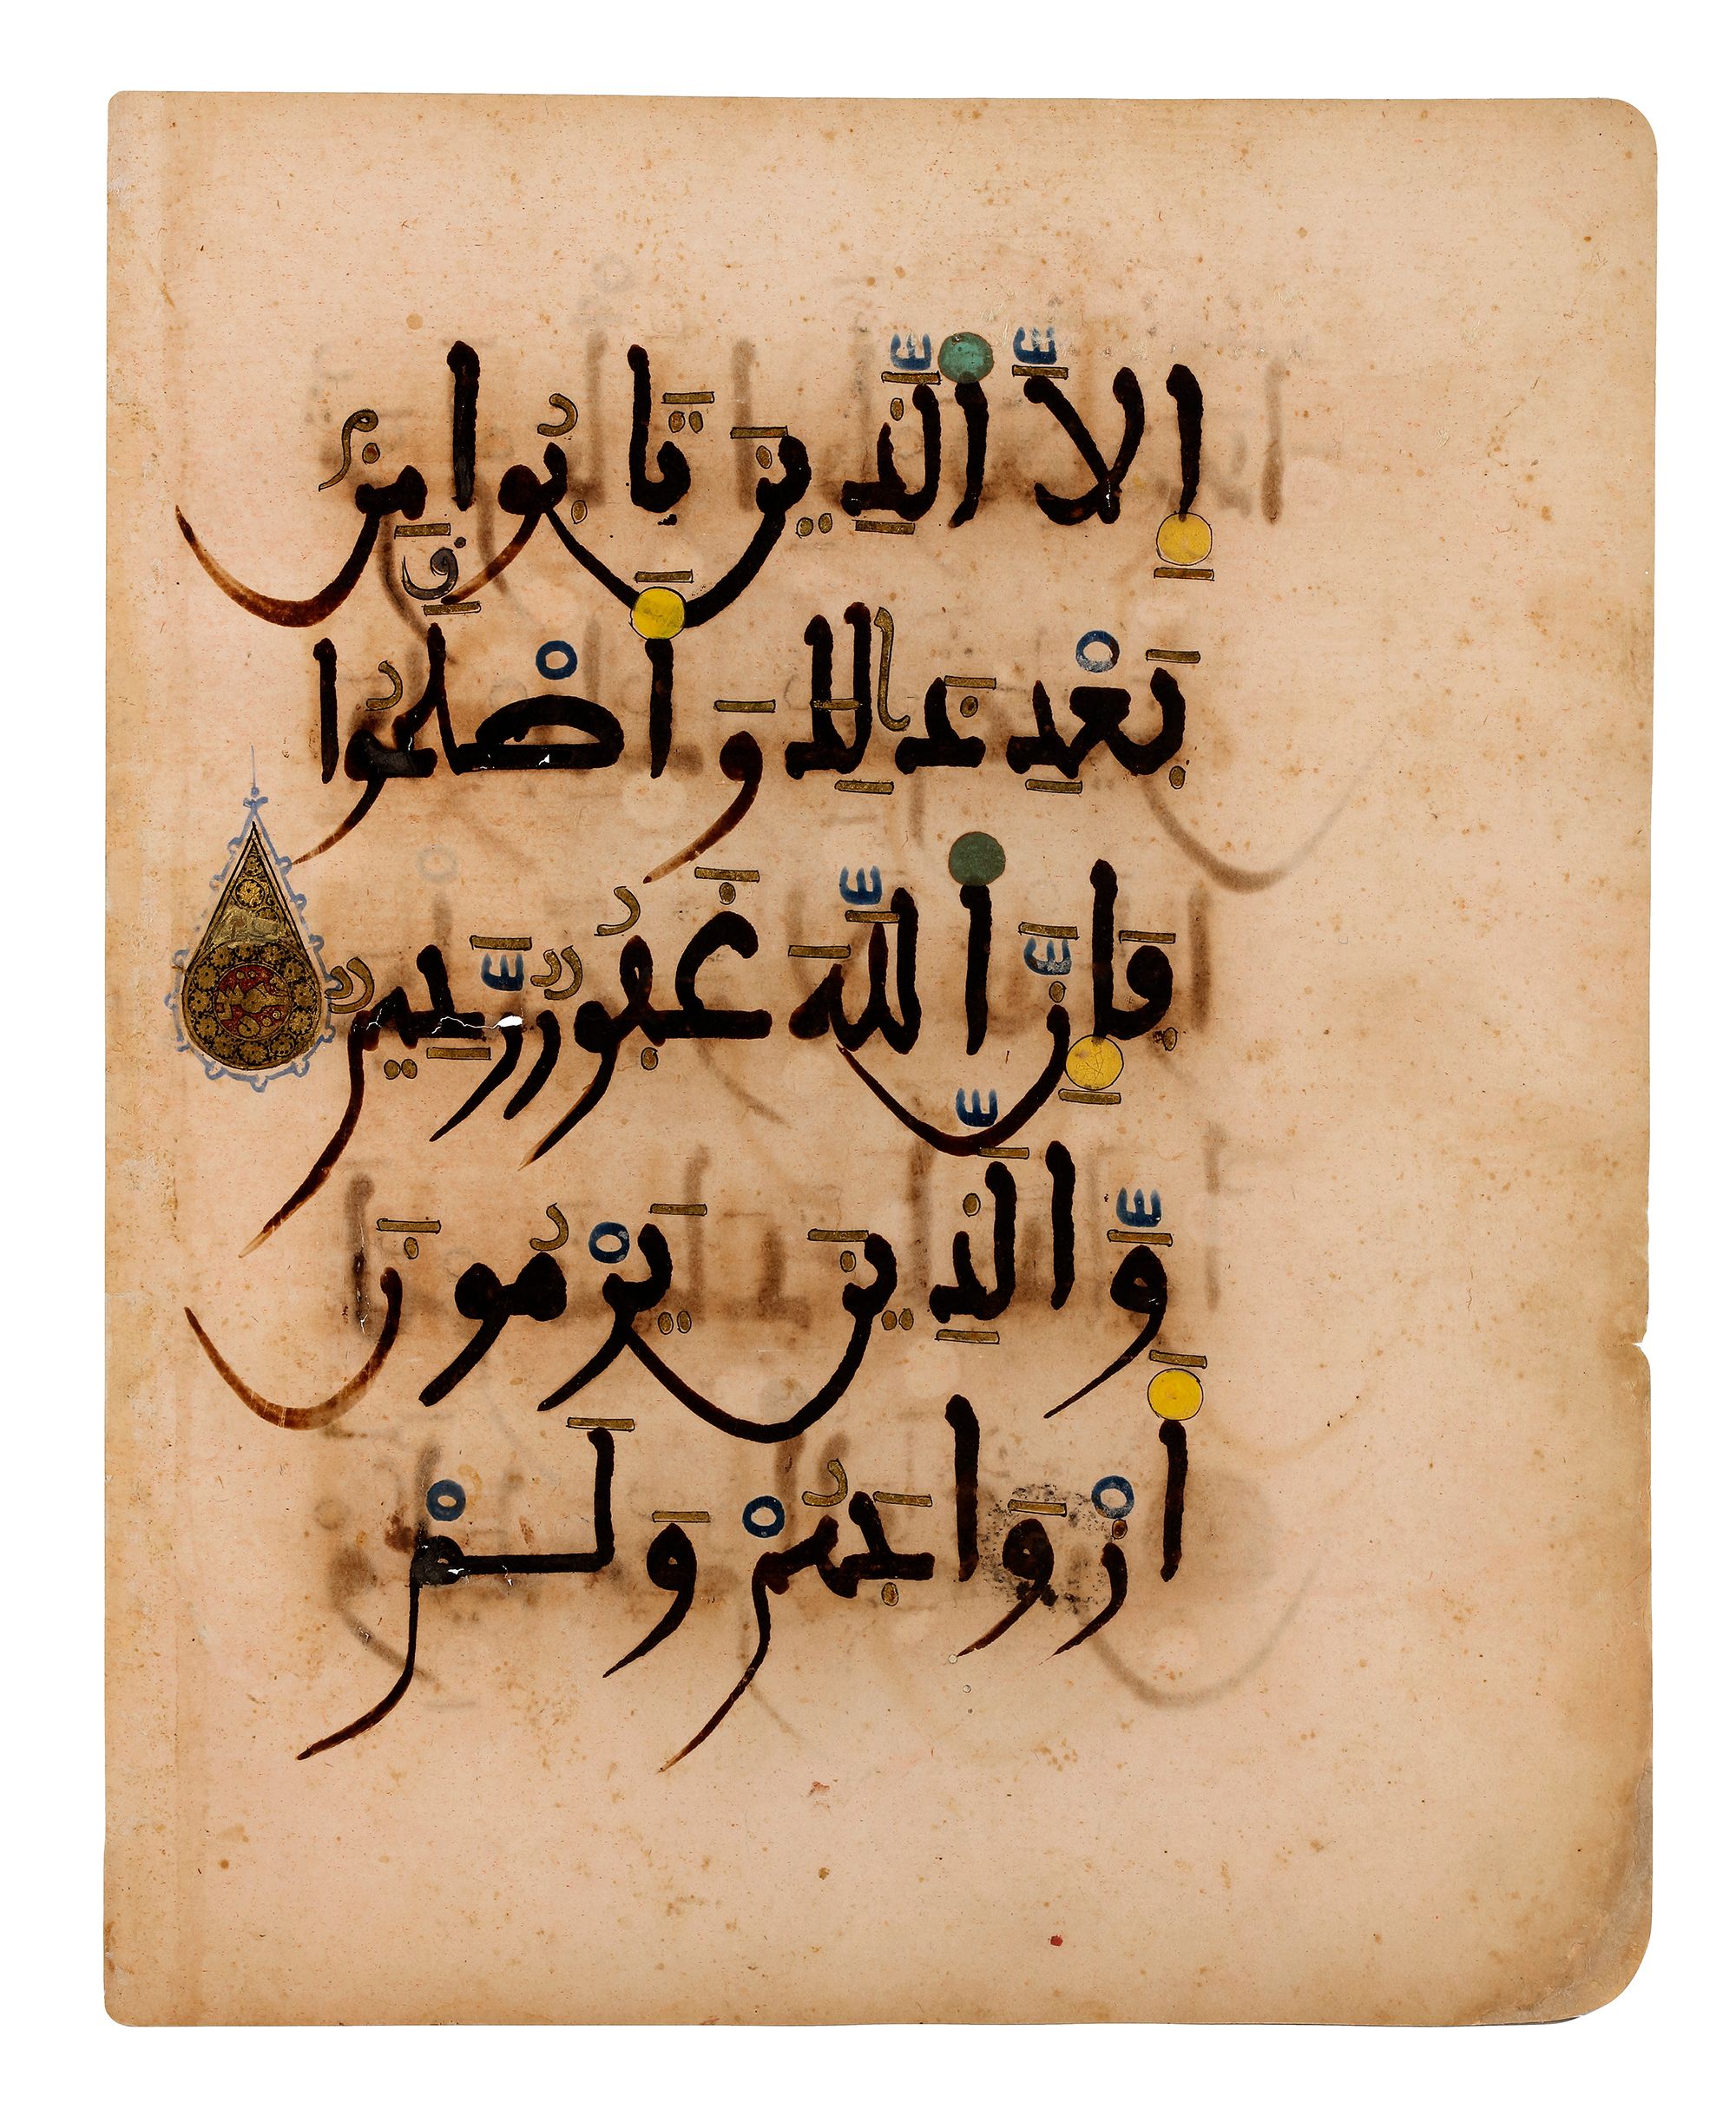 إِلَّا ٱلَّذِينَ تَابُوا مِنۢ
بَعْدِ ذَٰلِكَ وَأَصْلَحُوا
فَإِنَّ ٱللَّهَ غَفُورٌ رَّحِيمٌ
وَالَّذِينَ يَرْمُونَ
أَزْوَاجَهُمْ وَلَمْ